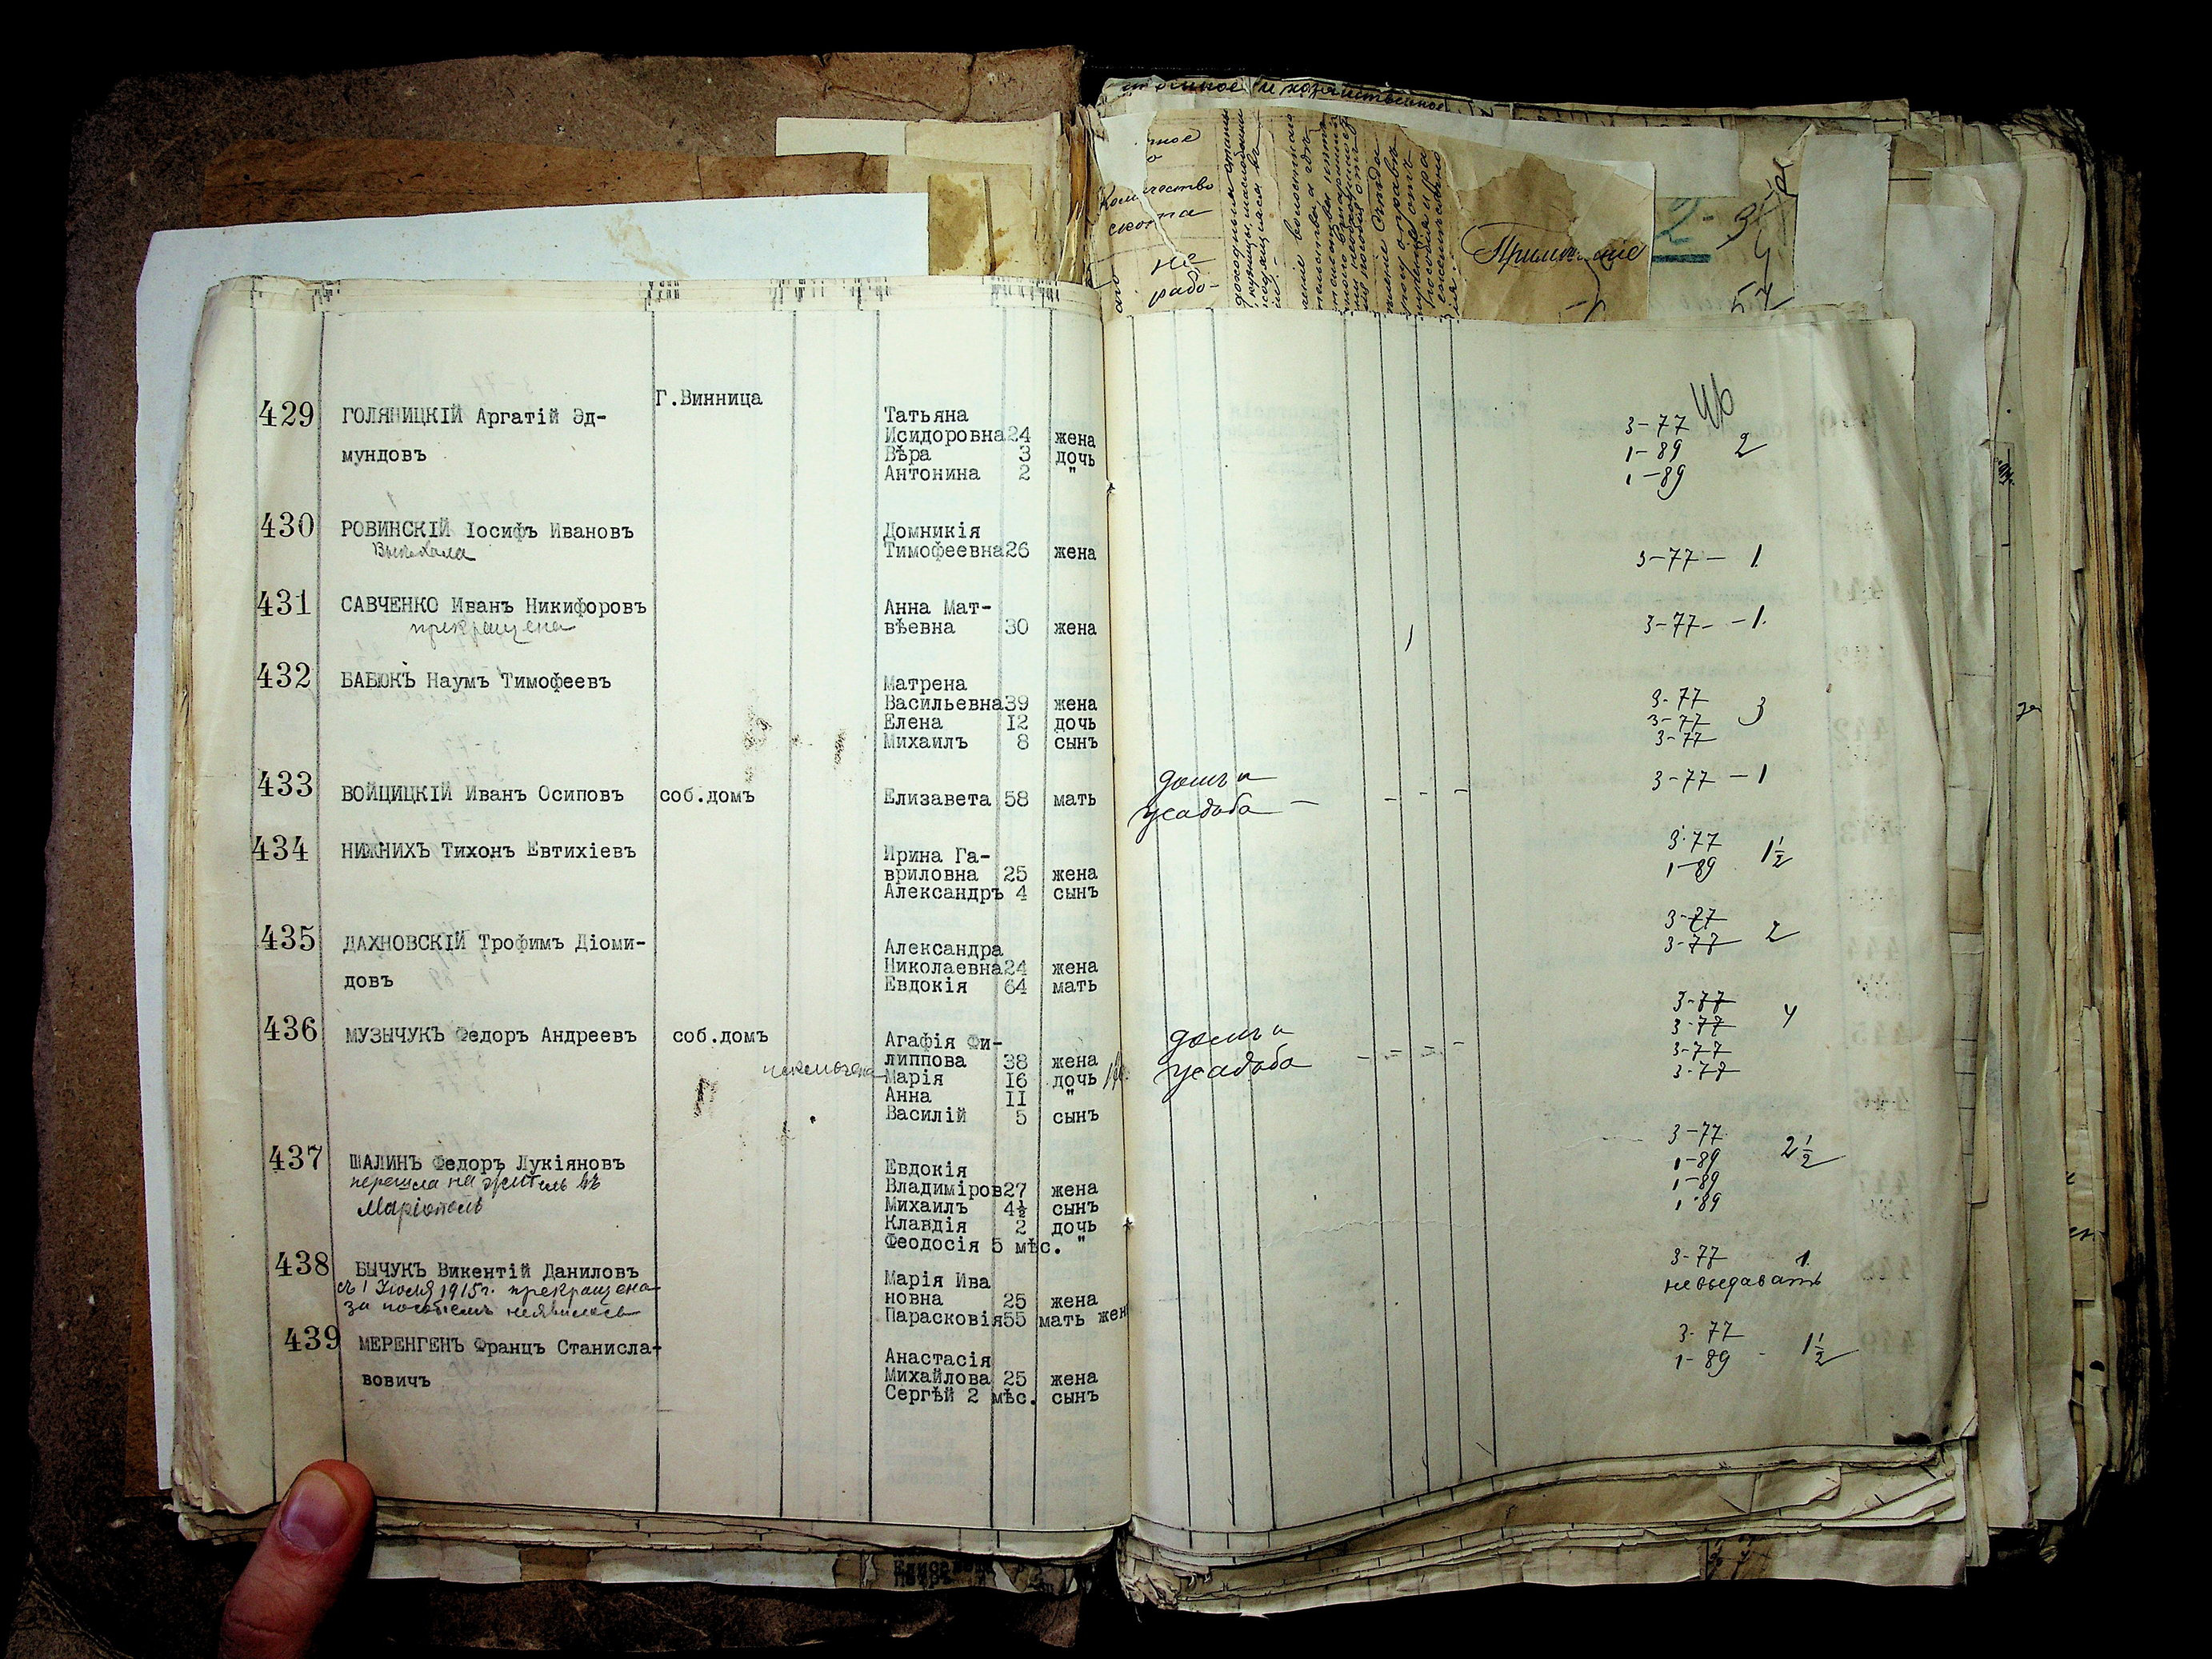 Количество
скота
не
рабо-
2-3
429 ГОЛЯНИЦКІЙ Аргатій Эд-
мундовъ
Г.Винница
Татьяна
Исидоровна 24 жена
Вѣра 3 дочь
Антонина 2 "
3-77
1-89 2
1-89
430 РОВИНСКІЙ Іосифъ Ивановъ
Выехала
Домникія
Тимофеевна 26 жена
3-77 — 1.
431 САВЧЕНКО Иванъ Никифоровъ
прекращена
Анна Мат-
вѣевна 30 жена
3-77- -1.
432 БАБЮКЪ Наумъ Тимофеевъ
Матрена
Васильевна 39 жена
Елена I2 дочь
Михаилъ 8 сынъ
3-77
3-77 3
3-77
433 ВОЙЦИЦКІЙ Иванъ Осиповъ соб.домъ Елизавета 58 мать
домъ и
усадьба — - - -
3-77 — 1
434 НИЖНИХЪ Тихонъ Евтихіевъ
Ирина Га-
вриловна 25 жена
Александръ 4 сынъ
3-77
1-89 1½
435 ДАХНОВСКІЙ Трофимъ Діоми-
довъ
Александра
Николаевна 24 жена
Евдокія 64 мать
3-77
3-77 2
436 МУЗЫЧУКЪ Федоръ Андреевъ соб.домъ
Агафія Фи-
липпова 38 жена
исключена Марія I6 дочь
Анна II "
Василій 5 сынъ
домъ и
усадьба - = = -
3-77
3-77 4
3-77
3-77
437 ШАЛИНЪ Федоръ Лукіяновъ
перешла на житель въ
Маріополь
Евдокія
Владиміров 27 жена
Михаилъ 4½ сынъ
Клавдія 2 дочь
Феодосія 5 мѣс. "
3-77
1-89 2½
1-89
1-89
438 БЫЧУКЪ Викентій Даниловъ
съ 1 Іюля 1915г. прекращена
за пособіемъ неявилась
Марія Ива
новна 25 жена
Парасковія 55 мать жен
3-77 1.
невыдавать
439 МЕРЕНГЕНЪ Францъ Станисла-
вовичъ
Анастасія
Михайлова 25 жена
Сергѣй 2 мѣс. сынъ
3-77
1-89 - 1½